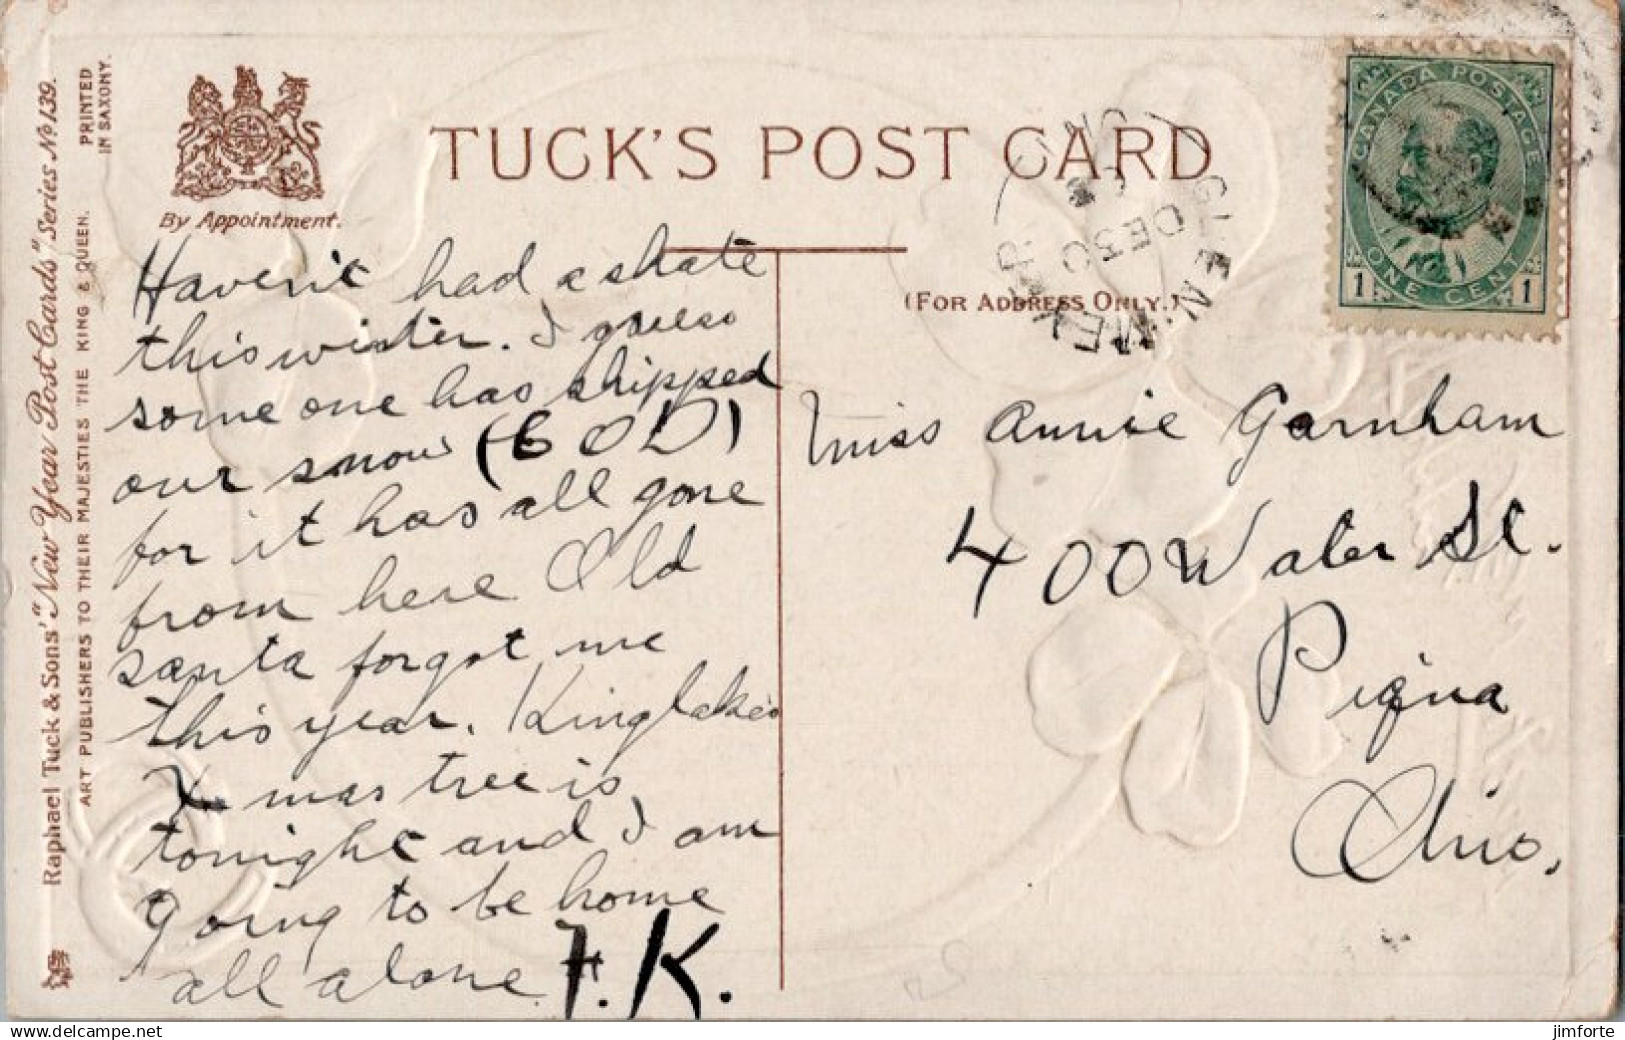 TUCK'S POST CARD
By Appointment.
(FOR ADDRESS ONLY.)
Raphael Tuck & Sons' "New Year Post Cards" Series No 139.
ART PUBLISHERS TO THEIR MAJESTIES THE KING & QUEEN.
PRINTED
IN SAXONY.
CANADA POSTAGE
1 ONE CENT 1
DE 30
Haven't had a skate
this winter. I guess
some one has shipped
our snow (COD)
for it has all gone
from here Old
santa forgot me
this year. Kinglake's
X-mas tree is
tonight and I am
going to be home
all alone. F.K.
Miss Annie Garnham
400 Water St.
Piqua
Ohio.
jimforte